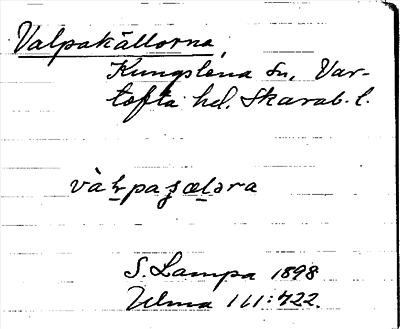 Valpakällorna,
Kungslena sn, Var-
tofta hd. Skarab. l.
S. Lampa 1898
Ulma 111:422.